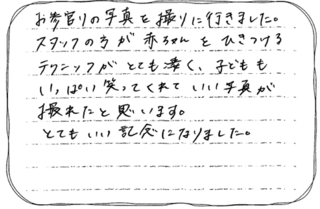 お宮参りの写真を撮りに行きました。
スタッフの方が赤ちゃんをひきつける
テクニックがとても凄く、子どもも
いっぱい笑ってくれていい写真が
撮れたと思います。
とてもいい記念になりました。